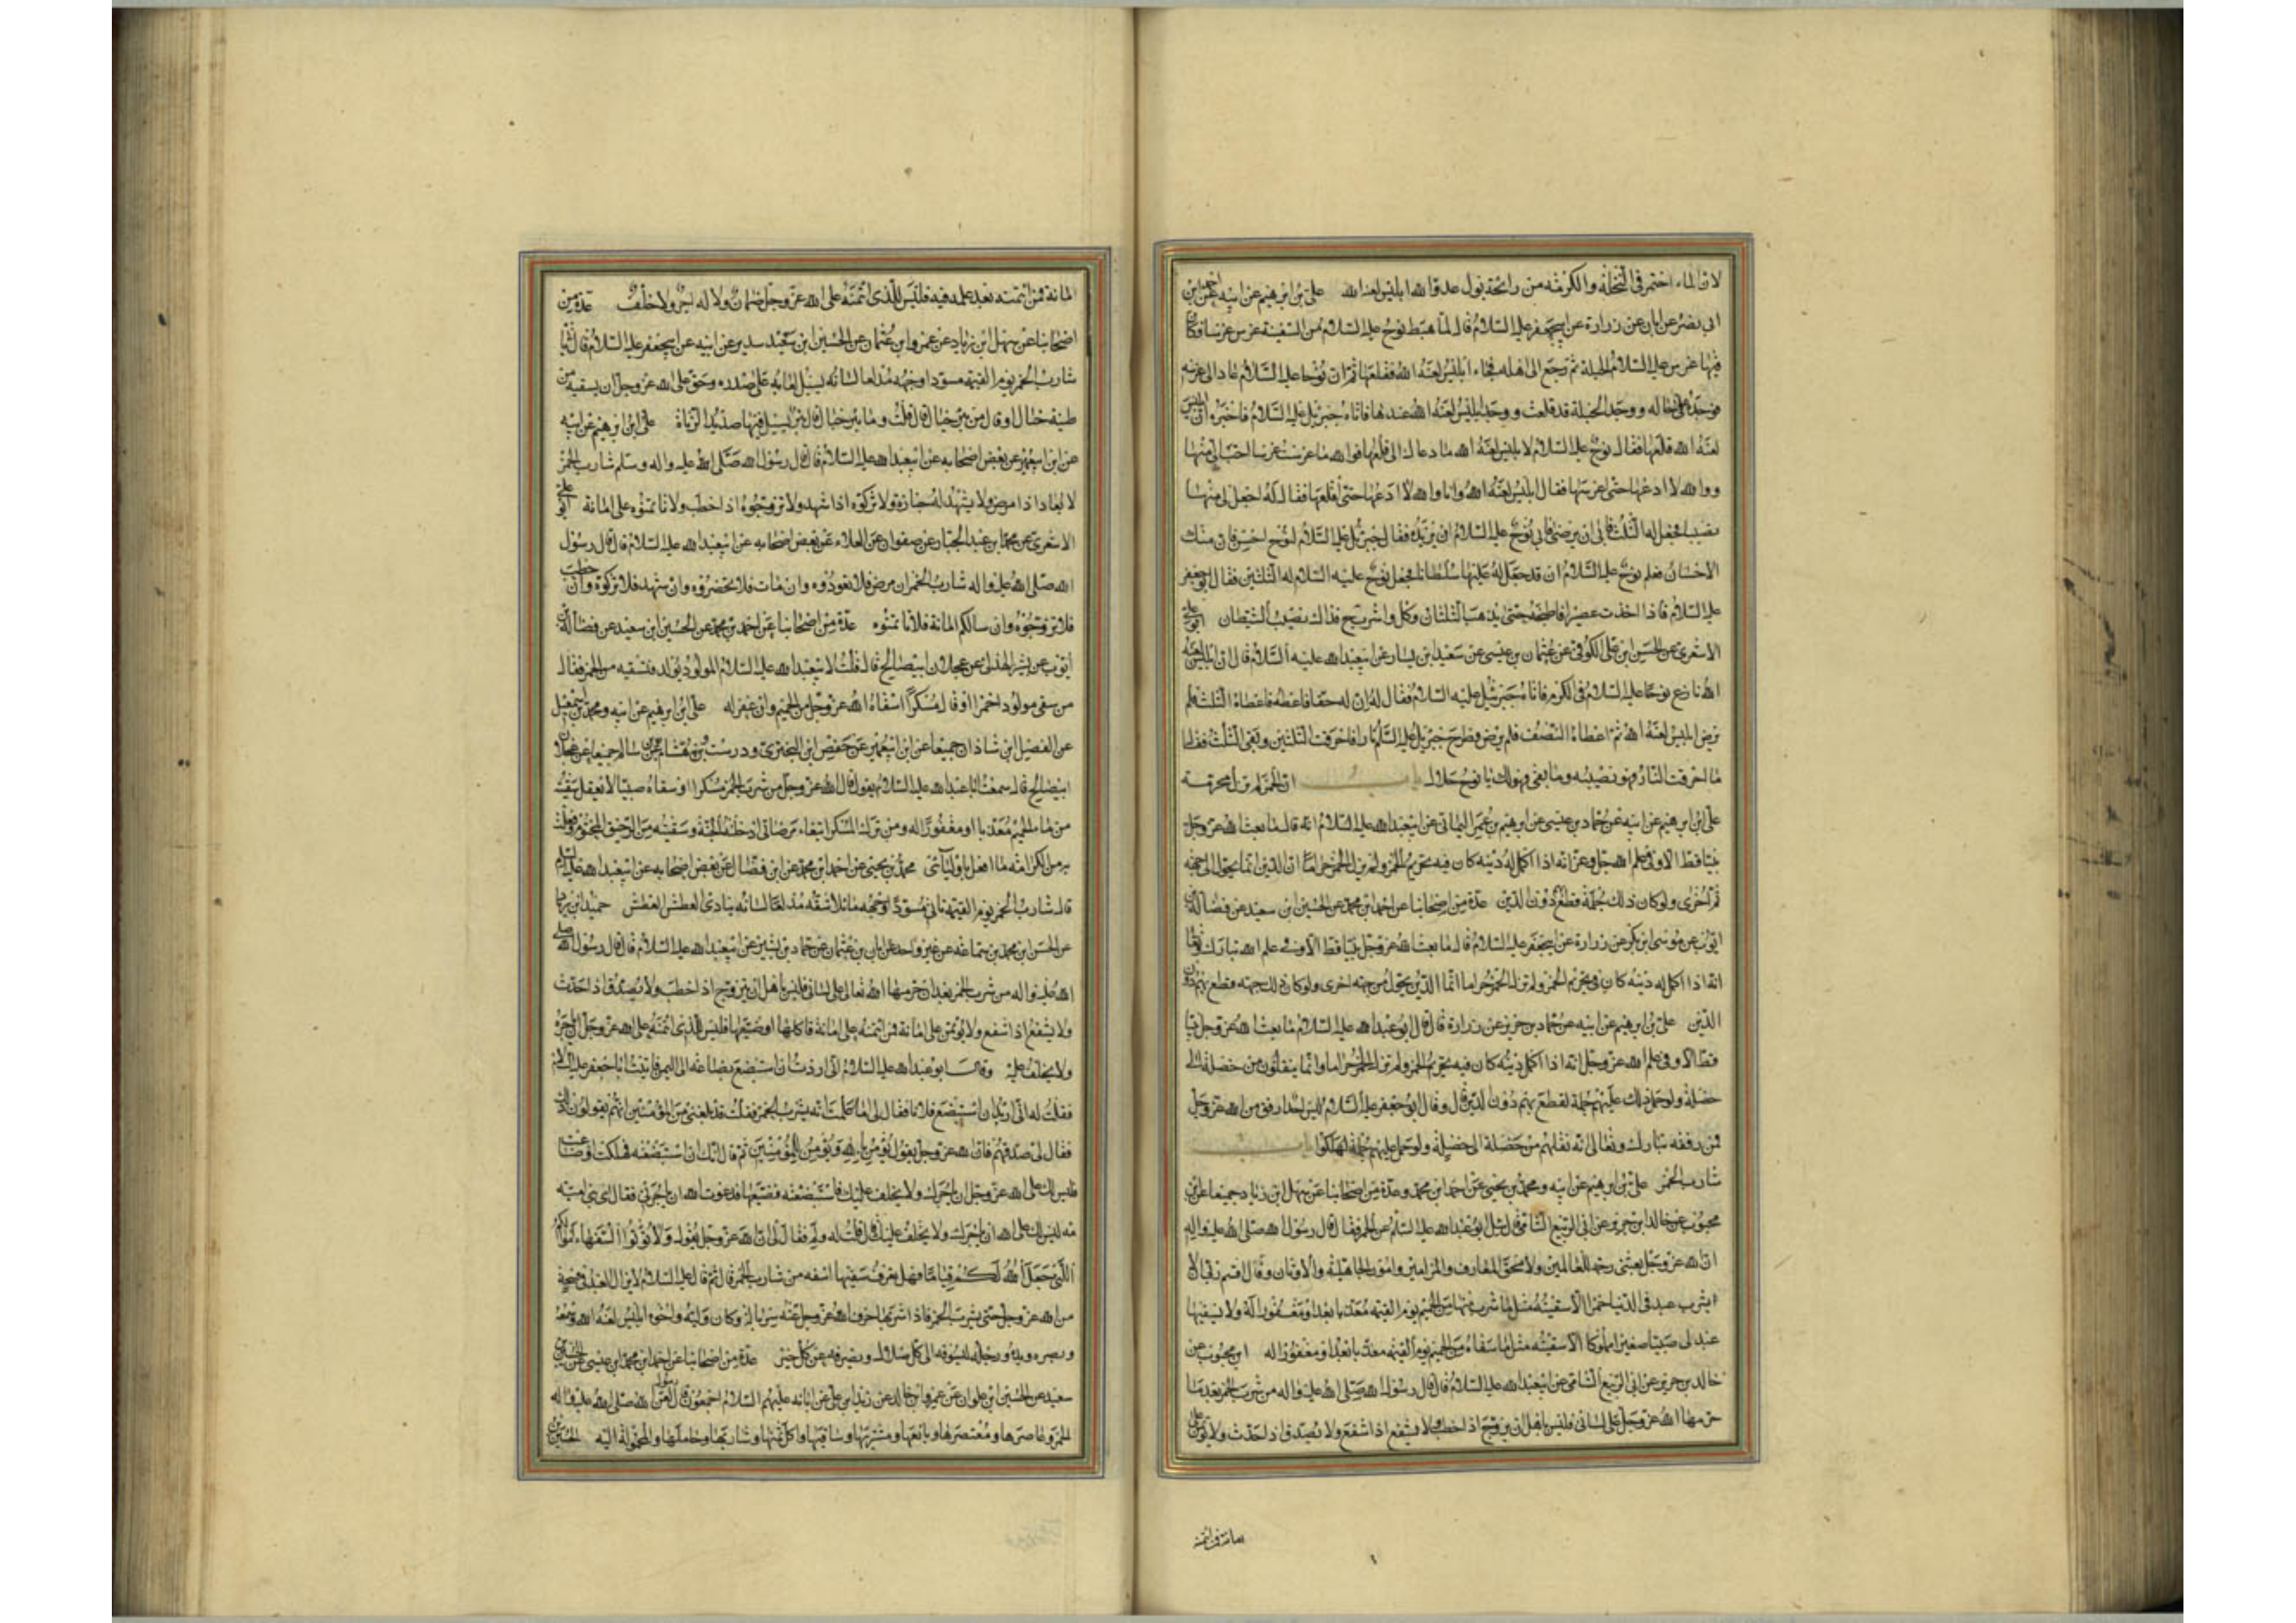 لان الماء اختمر فى النخلة والكرمة من رائحة بول عدو الله ابليس لعنه الله على بن ابرهيم عن ابيه عن ابن
ابى نصر عن ابان عن زرارة عن ابيجعفر عليه السلام قال لما هبط نوح عليه السلام من السفينة غرس غرسا وكان
فيما غرس عليه السلام الحبلة ثم رجع الى اهله فجاء ابليس لعنه الله فقلعها ثم ان نوحا عليه السلام عاد الى غرسه
فوجده على حاله ووجد الحبلة قد قلعت ووجد ابليس لعنه الله عندها فاتاه جبرئيل عليه السلام فاخبره ان ابليس
لعنه الله قلعها فقال نوح عليه السلام لابليس لعنه الله ما دعاك الى قلعها فوالله ما غرست غرسا احب الى منها
ووالله لا ادعها حتى اغرسها فقال ابليس لعنه الله وانا والله لا ادعها حتى اقلعها فقال له اجعل لى منها
نصيبا فجعل له الثلث فابى ان يرضى فابى نوح عليه السلام ان يزيده فقال جبرئيل عليه السلام لنوح احسن فان منك
الاحسان فعلم نوح عليه السلام ان قد جعل له عليها سلطانا فجعل نوح عليه السلام له الثلثين فقال ابو جعفر
عليه السلام فاذا اخذت عصيرا فاطبخه حتى يذهب الثلثان وكل واشرب فذاك نصيب الشيطان ابو على
الاشعرى عن الحسن ابن على الكوفى عن عثمان بن عيسى عن سعيد ابن يسار عن ابيعبد الله عليه السلام قال ان ابليس لعنه
الله نازع نوحا عليه السلام فى الكرم فاتاه جبرئيل عليه السلام فقال له ان له حقا فاعطه فاعطاه الثلث فلم
يرض ابليس لعنه الله ثم اعطاه النصف فلم يرض فطرح جبرئيل عليه السلام نارا فاحرقت الثلثين وبقى الثلث فقال
ما احرقت النار فهو نصيبه وما بقى فهو لك يا نوح حلال باب ان الخمر لم يزل محرمة
على ابن ابرهيم عن ابيه عن حماد بن عيسى عن ابرهيم بن عمر اليمانى عن ابيعبد الله عليه السلام انه قال ما بعث الله عز وجل
نبيا قط الا وفى علم الله جل وعز انه اذا اكمل له دينه كان فيه تحريم الخمر ولم يزل الخمر حراما ان الدين انما يحول الى جهة
ثم اخرى ولو كان ذلك جملة قطع دون الدين عدة من اصحابنا عن احمد ابن محمد عن الحسين ابن سعيد عن فضالة بن
ايوب عن موسى ابن بكر عن زرارة عن ابيجعفر عليه السلام قال ما بعث الله عز وجل نبيا قط الا وفى علم الله تبارك وتعالى
انه اذا اكمل له دينه كان فيه تحريم الخمر ولم تزل الخمر حراما انما الدين يحول من جهة اخرى ولو كان ذلك جهته قطع بهم دون
الدين على بن ابرهيم عن ابيه عن حماد بن حريز عن زرارة قال قال ابو عبد الله عليه السلام ما بعث الله عز وجل نبيا
قط الا وفى علم الله عز وجل انه اذا اكمل دينه كان فيه تحريم الخمر ولم تزل الخمر حراما وانما ينقلون من خصلة الى
خصلة ولو حمل ذلك عليهم جملة لقطع بهم دون الدين قال وقال ابو جعفر عليه السلام ليس احد ارفق من الله عز وجل
فمن رفقه تبارك وتعالى انه نقلهم من خصلة الى خصلة ولو حمل عليهم جملة لهلكوا باب
شارب الخمر على بن ابرهيم عن ابيه ومحمد بن يحيى عن احمد ابن محمد وعدة من اصحابنا عن سهل ابن زياد جميعا عن ابن
محبوب عن خالد ابن جرير عن ابى الربيع الشامى قال سئل ابو عبد الله عليه السلام عن الخمر فقال قال رسول الله صلى الله عليه واله
ان الله عز وجل بعثنى رحمة للعالمين ولامحق المعازف والمزامير وامور الجاهلية والاوثان وقال اقسم ربى ان لا
يشرب عبد فى الدنيا خمرا الا سقيته مثل ما شرب منها من الحميم يوم القيمة معذبا بعد او مغفورا له ولا يسقيها
عبد لى صبيا صغيرا مملوكا الا سقيته مثل ما سقاه من الحميم يوم القيمة معذبا بعد او مغفورا له ابن محبوب عن
خالد بن جرير عن ابى الربيع الشامى عن ابيعبد الله عليه السلام قال قال رسول الله صلى الله عليه واله من شرب الخمر بعد ما
حرمها الله عز وجل على لسانى فليس باهل ان يزوج اذا خطب ولا يشفع اذا شفع ولا يصدق اذا حدث ولا يؤتمن على
امانة فمن ائتمنه
امانة فمن ائتمنه بعد علمه فيه فليس للذى ائتمنه على الله عز وجل ضمان ولا له اجر ولا خلف عدة من
اصحابنا عن سهل ابن زياد عن عمرو ابن عثمان عن الحسين ابن سعيد سدير عن ابيه عن ابيجعفر عليه السلام قال يأتى
شارب الخمر يوم القيمة مسودا وجهه مدلعا لسانه يسيل لعابه على صدره وحق على الله عز وجل ان يسقيه من
طينة خبال او قال من بئر خبال قال قلت وما بئر خبال قال بئر يسيل فيها صديد الزناة على ابن ابرهيم عن ابيه
عن ابن ابيعمير عن بعض اصحابه عن ابيعبد الله عليه السلام قال قال رسول الله صلى الله عليه واله وسلم شارب الخمر
لا يعاد اذا مرض ولا يشهد له جنازة ولا تزكوه اذا شهد ولا تزوجوه اذا خطب ولا تأتمنوه على امانة ابو على
الاشعرى عن محمد ابن عبد الجبار عن صفوان عن العلاء عن بعض اصحابه عن ابيعبد الله عليه السلام قال قال رسول
الله صلى الله عليه واله شارب الخمر ان مرض فلا تعودوه وان مات فلا تحضروه وان شهد فلا تزكوه وان خطب
فلا تزوجوه وان سالكم امانة فلا تأتمنوه عدة من اصحابنا عن احمد بن محمد عن الحسين ابن سعيد عن فضالة بن
ايوب عن بشير الهذلى عن عجلان ابيصالح قال قلت لابيعبد الله عليه السلام المولود يولد فنسقيه من الخمر فقال
من سقى مولودا خمرا او قال مسكرا اسقاه الله عز وجل من الحميم وان غفر له على ابن ابرهيم عن ابيه ومحمد بن اسمعيل
عن الفضيل ابن شاذان جميعا عن ابن ابيعمير عن حفص ابن البخترى ودرست وهشام بن سالم جميعا عن عجلان
ابيصالح قال سمعت ابا عبد الله عليه السلام يقول قال الله عز وجل من شرب الخمر مسكرا او سقاه صبيا لا يعقل سقيته
من ماء الحميم معذبا او مغفورا له ومن ترك المسكر ابتغاء مرضاتى ادخلته الجنة وسقيته من الرحيق المختوم وفعلت
به من الكرامة ما افعل باوليائى محمد بن يحيى عن احمد ابن محمد عن ابن فضال عن بعض اصحابه عن ابيعبد الله عليه السلام
قال شارب الخمر يوم القيمة يأتى مسودا وجهه مائلا شقه مدلعا لسانه ينادى العطش العطش حميد ابن زياد
عن الحسن ابن محمد بن سماعة عن غير واحد عن ابان بن عثمان عن حماد بن بشير عن ابيعبد الله عليه السلام قال قال رسول الله صلى
الله عليه واله من شرب الخمر بعد ان حرمها الله تعالى على لسانى فليس باهل ان يتزوج اذا خطب ولا يصدق اذا حدث
ولا يشفع اذا شفع ولا يؤتمن على امانة فمن ائتمنه على امانة فاكلها او ضيعها فليس للذى ائتمنه على الله عز وجل ان يأجره
ولا يخلف عليه وقال ابو عبد الله عليه السلام انى اردت ان استبضع بضاعة الى اليمن فاتيت ابا جعفر عليه السلام
فقلت له انى اريد ان استبضع فلانا فقال لى اما علمت انه يشرب الخمر فقلت قد بلغنى من المؤمنين انهم يقولون ذلك
فقال لى صدقهم فان الله عز وجل يقول يؤمن بالله ويؤمن للمؤمنين ثم قال انك ان استبضعته فهلكت او ضاعت
فليس لك على الله عز وجل ان يأجرك ولا يخلف عليك فاستبضعته فضيعها فدعوت الله ان يأجرنى فقال اى بنى
مه ليس لك على الله ان يأجرك ولا يخلف عليك قال قلت له ولم فقال لى ان الله عز وجل يقول ولا تؤتوا السفهاء اموالكم
التى جعل الله لكم قياما فهل تعرف سفيها اسفه من شارب الخمر قال ثم قال عليه السلام لا يزال العبد فى فسحة
من الله عز وجل حتى يشرب الخمر فاذا شربها خرق الله عز وجل عنه سرباله وكان وليه واخوه ابليس لعنه الله وسمعه
وبصره ويده ورجله يسوقه الى كل ضلال ويصرفه عن كل خير عدة من اصحابنا عن احمد ابن محمد ابن عيسى عن الحسين بن
سعيد عن الحسين ابن علوان عن عمرو ابن خالد عن زيد ابن على عن ابائه عليهم السلام اجمعون قال لعن رسول الله صلى الله عليه واله
الخمر وعاصرها ومعتصرها وبايعها ومشتريها وساقيها واكل ثمنها وشاربها وحاملها والمحمولة اليه الحسين بن